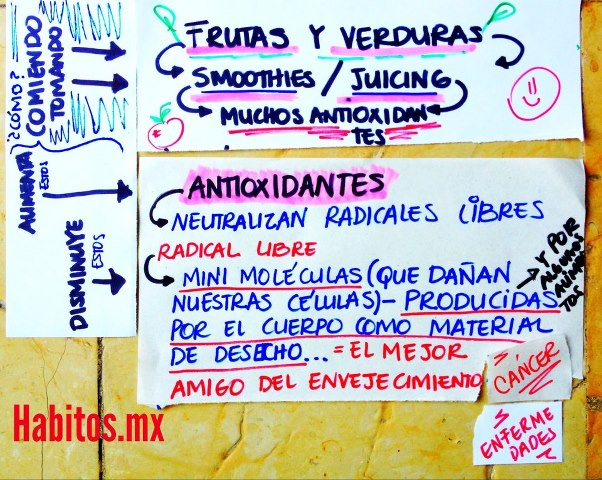 FRUTAS Y VERDURAS
SMOOTHIES / JUICING
MUCHOS ANTIOXIDAN
TES
¿CÓMO?
COMIENDO
TOMANDO
AUMENTA
ESTOS
DISMINUYE
ESTOS
ANTIOXIDANTES
NEUTRALIZAN RADICALES LIBRES
RADICAL LIBRE
MINI MOLÉCULAS (QUE DAÑAN
NUESTRAS CÉLULAS) – PRODUCIDAS
POR EL CUERPO COMO MATERIAL
DE DESECHO... = EL MEJOR
AMIGO DEL ENVEJECIMIENTO
Y POR
ALGUNOS
ALIMEN
TOS
CÁNCER
ENFERME
DADES
Habitos.mx